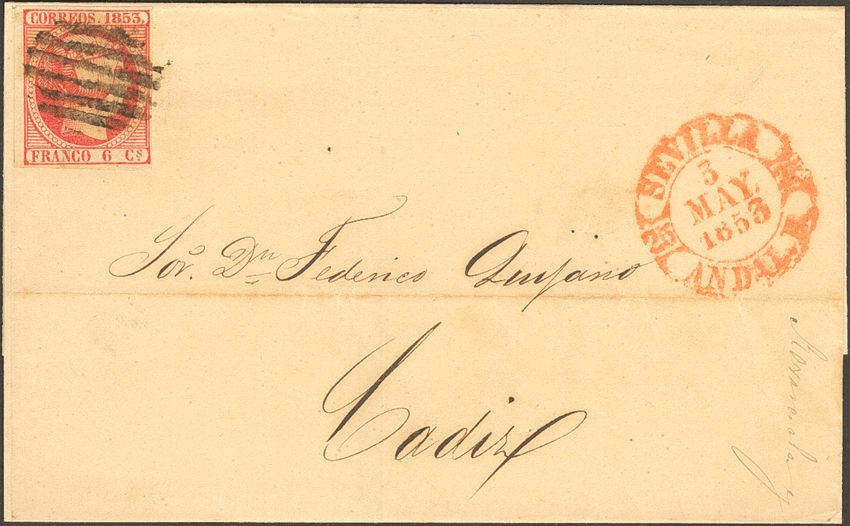 CORREOS. 1853.
FRANCO 6 Cs
SEVILLA
3
MAY.
1853
ANDAL
Sor. Dn Federico Quijano
Cadiz